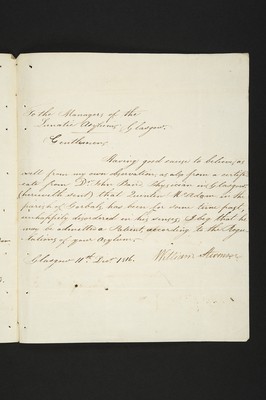 To the Managers of the
Lunatic Asylum, Glasgow.
Gentlemen,
Having good cause to believe, as
well from my own observation, as also from a certifi-
cate from Dr. John Physician in Glasgow
(herewith sent) that Quintin McAdam in the
parish of Gorbals, has been for some time past,
unhappily disordered in his senses; I beg that he
may be admitted a Patient, according to the Regu-
lations of your Asylum.
Glasgow 11th Decr. 1816. William